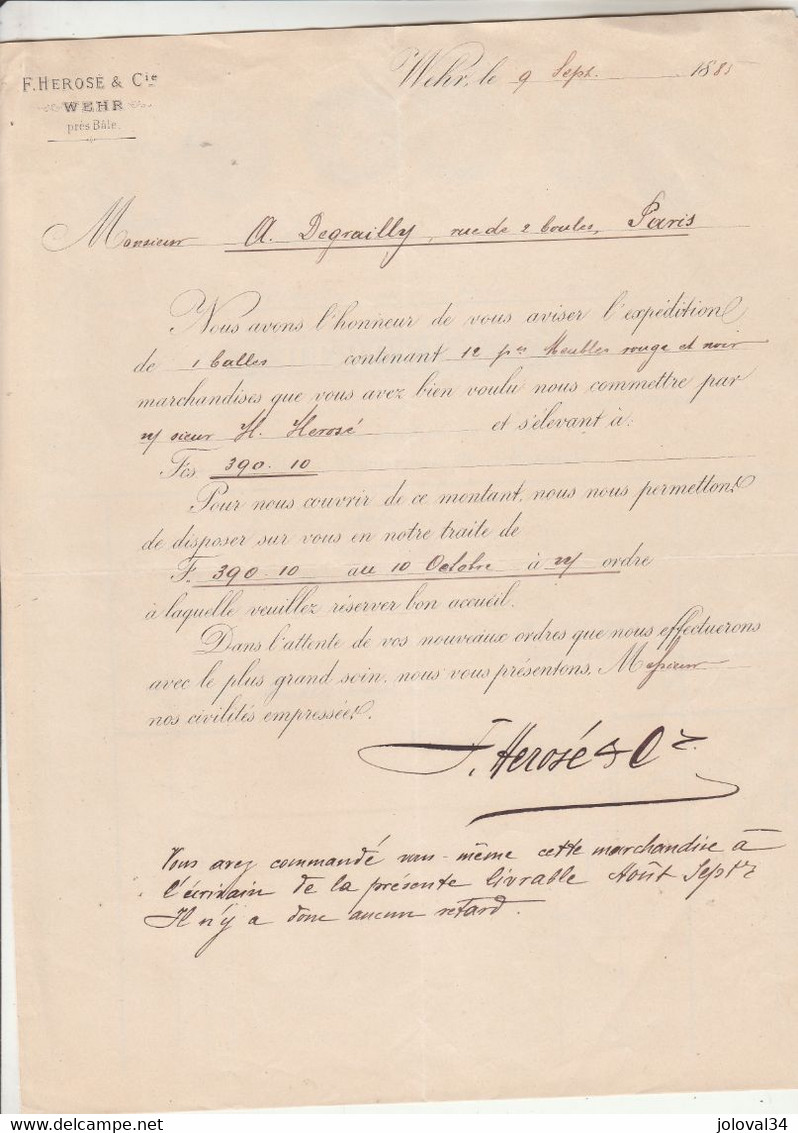 F. HEROSÉ & Cie
WEHR
près Bâle.
Wehr, le 9 Sept. 1885
Monsieur A. Degrailly, rue de 2 boules, Paris
Nous avons l'honneur de vous aviser l'expédition
de 1 balles contenant 12 pes Meubles rouge et noir
marchandises que vous avez bien voulu nous commettre par
n/ sieur H. Herosé et s'élevant à:
Fcs 390.10
Pour nous couvrir de ce montant, nous nous permettons
de disposer sur vous en notre traite de
F. 390.10 au 10 Octobre à n/ ordre
à laquelle veuillez réserver bon accueil.
Dans l'attente de vos nouveaux ordres que nous effectuerons
avec le plus grand soin, nous vous présentons, Monsieur
nos civilités empressées.
F. Herosé & Cie
Vous avez commandé vous-même cette marchandise à
l'écrivain de la présente livrable Août Septbr
Il n'y a donc aucun retard.
delcampe.net
joloval34